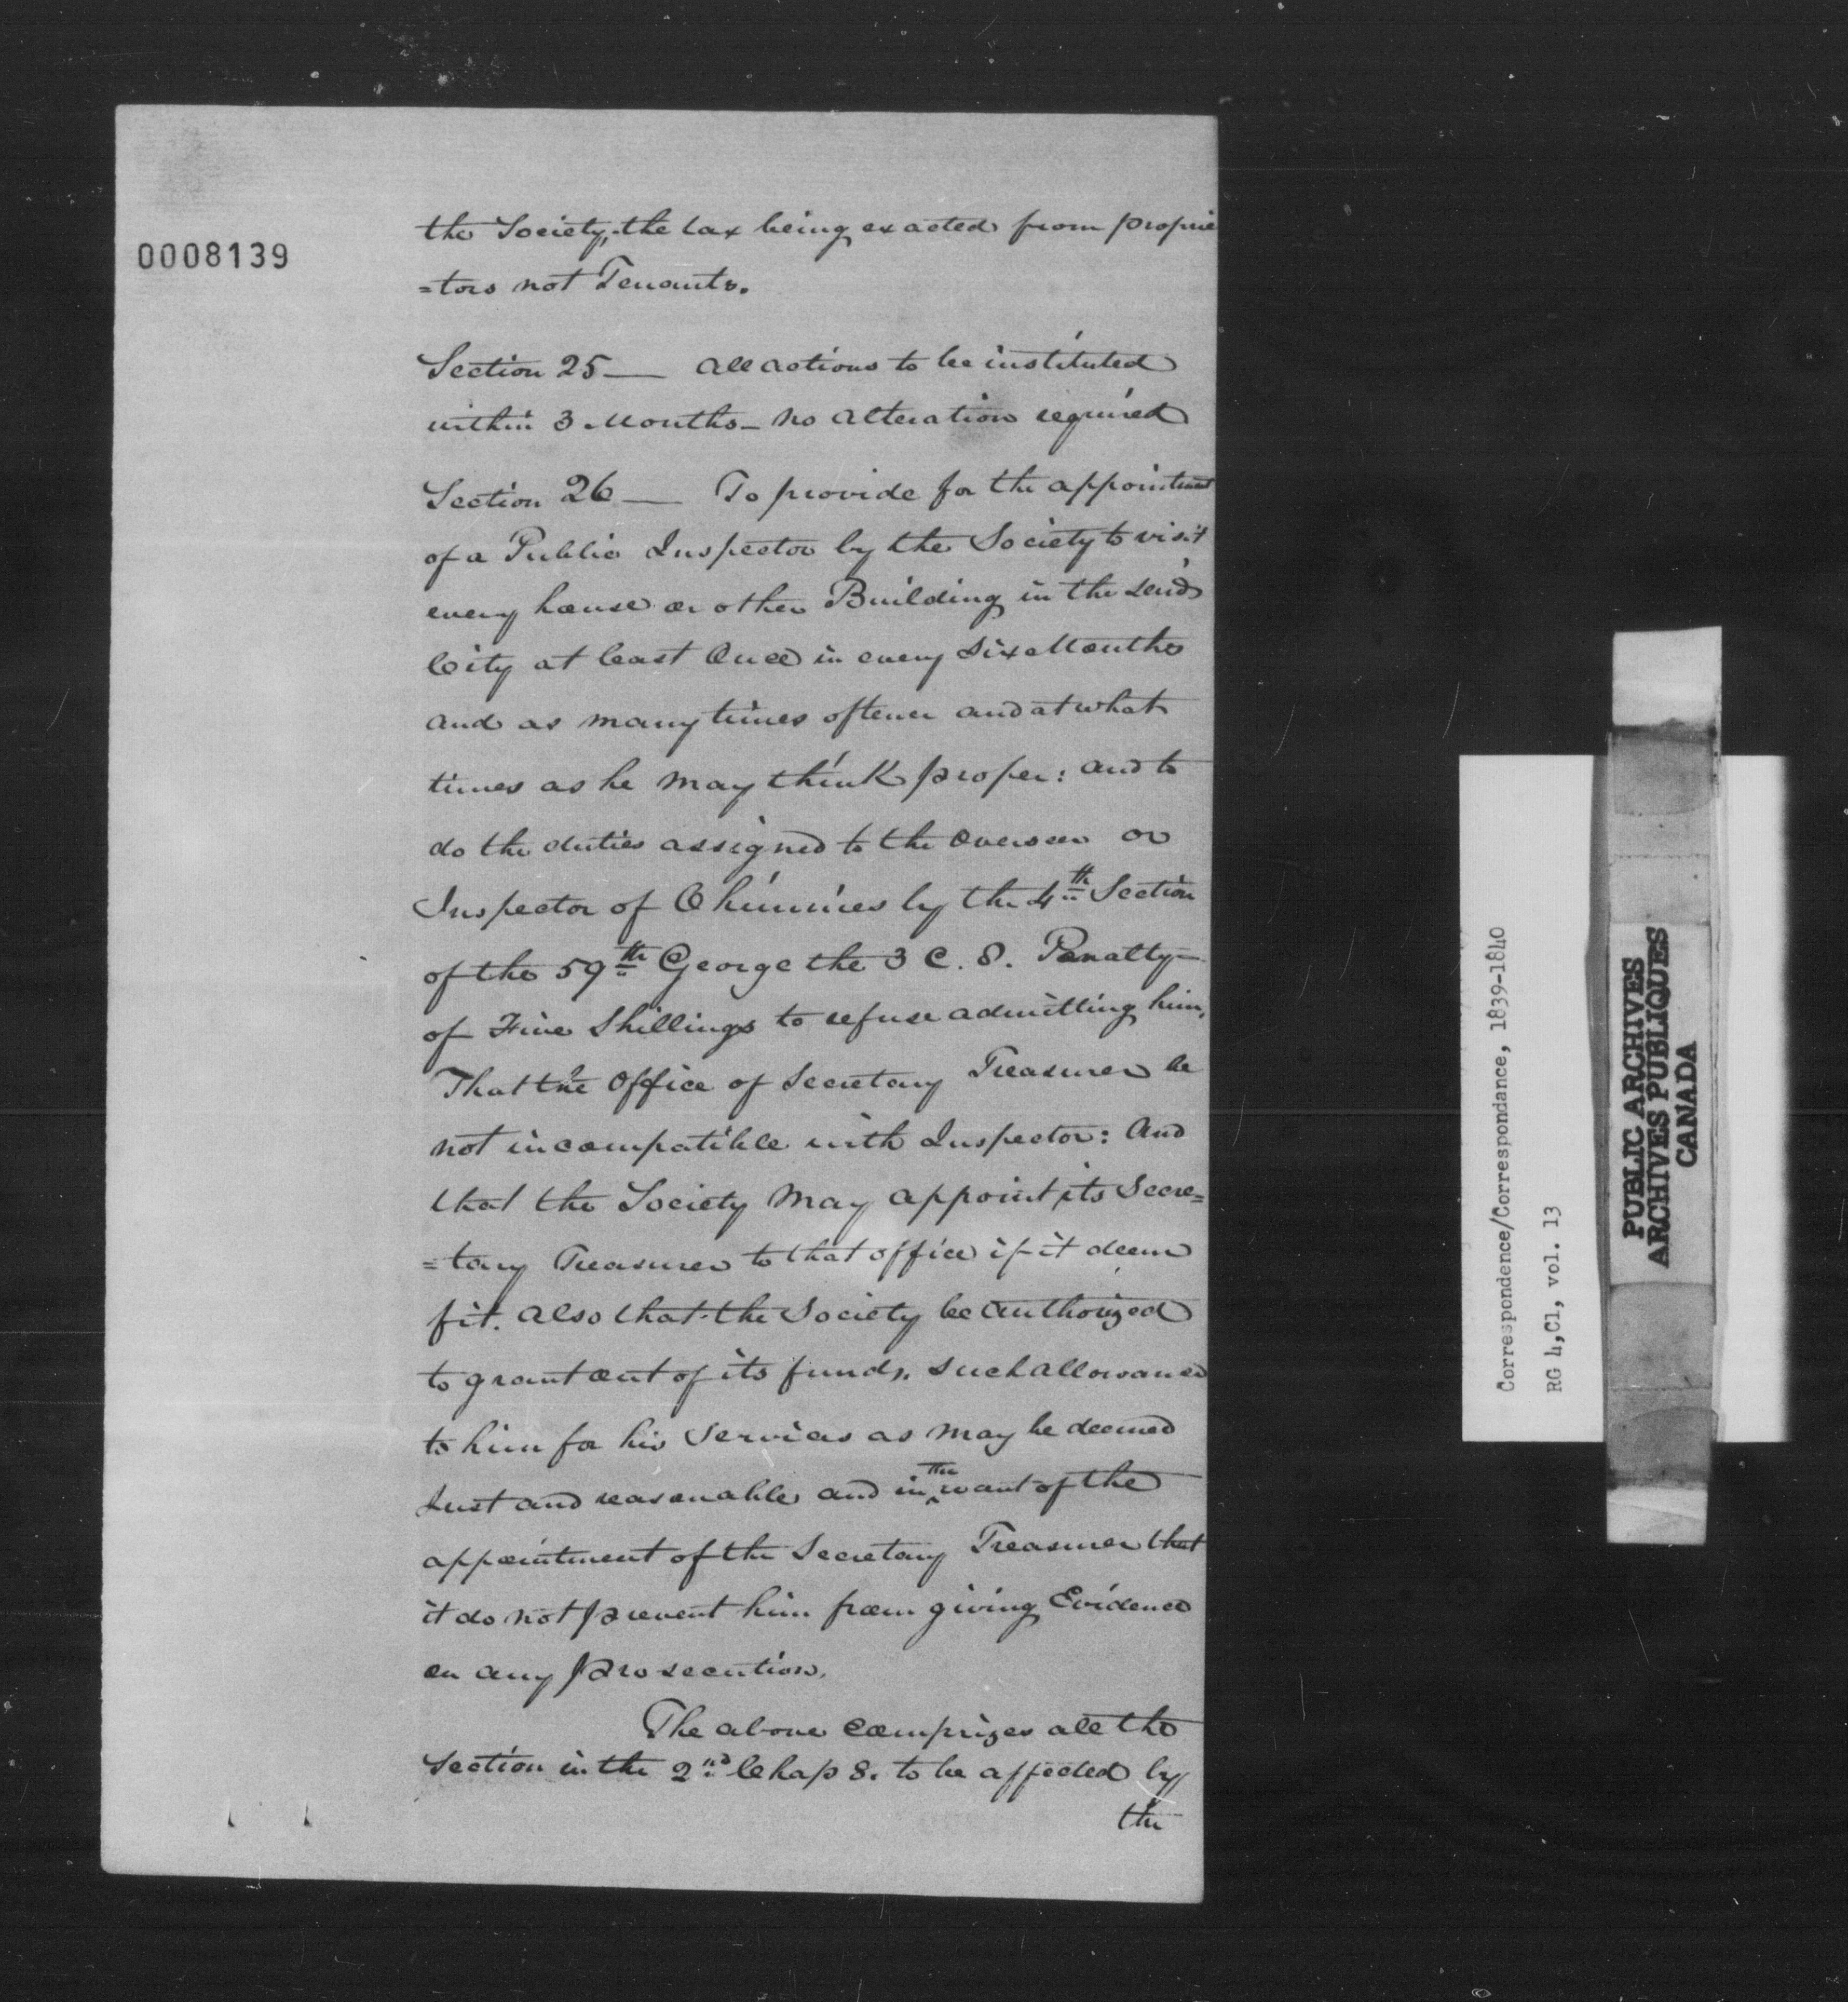 0008139
the Society, the tax being exacted from proprie
=tors not Tenants.
Section 25 — All actions to be instituted
within 3 Months – no alteration required
Section 26 — To provide for the appointment
of a Public Inspector by the Society to visit
every house or other Building in the said
City at least Once in every Six Months
and as many times oftener and at what
times as he may think proper: and to
do the duties assigned to the Overseer or
Inspector of Chimnies by the 4th Section
of the 59th George the 3 C. 8. Penalty
of Five Shillings to refuse admitting him,
That the Office of Secretary Treasurer be
not incompatible with Inspector: And
that the Society may appoint its Secre=
=tary Treasurer to that office if it deem
fit. Also that the Society be authorized
to grant out of its funds, such allowance
to him for his Services as may be deemed
Just and reasonable and in the want of the
appointment of the Secretary Treasurer that
it do not prevent him from giving Evidence
on any prosecution.
The above comprizes all the
Section in the 2nd Chap 8. to be affected by
the
Correspondence/Correspondance, 1839-1840
RG 4,C1, vol. 13
PUBLIC ARCHIVES
ARCHIVES PUBLIQUES
CANADA